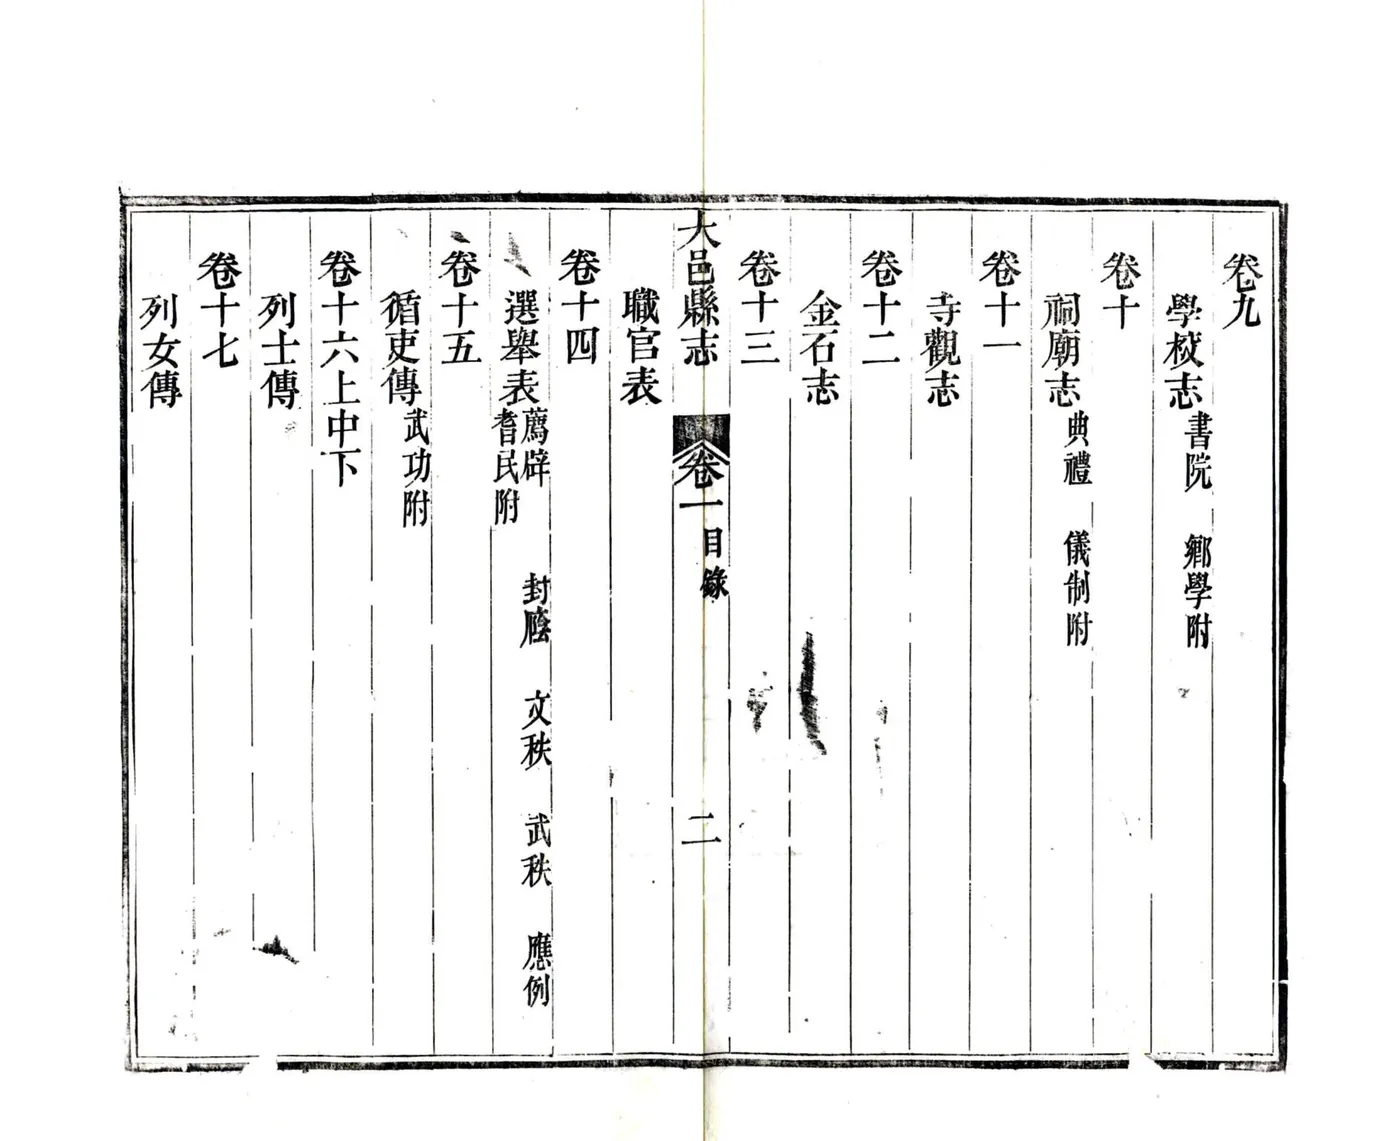 卷九
學校志 書院 鄉學附
卷十
祠廟志 典禮 儀制附
卷十一
寺觀志
卷十二
金石志
卷十三
大邑縣志 卷一 目錄 二
職官表
卷十四
選舉表 薦辟 封廕 文秩 武秩 應例
耆民附
卷十五
循吏傳 武功附
卷十六上中下
列士傳
卷十七
列女傳